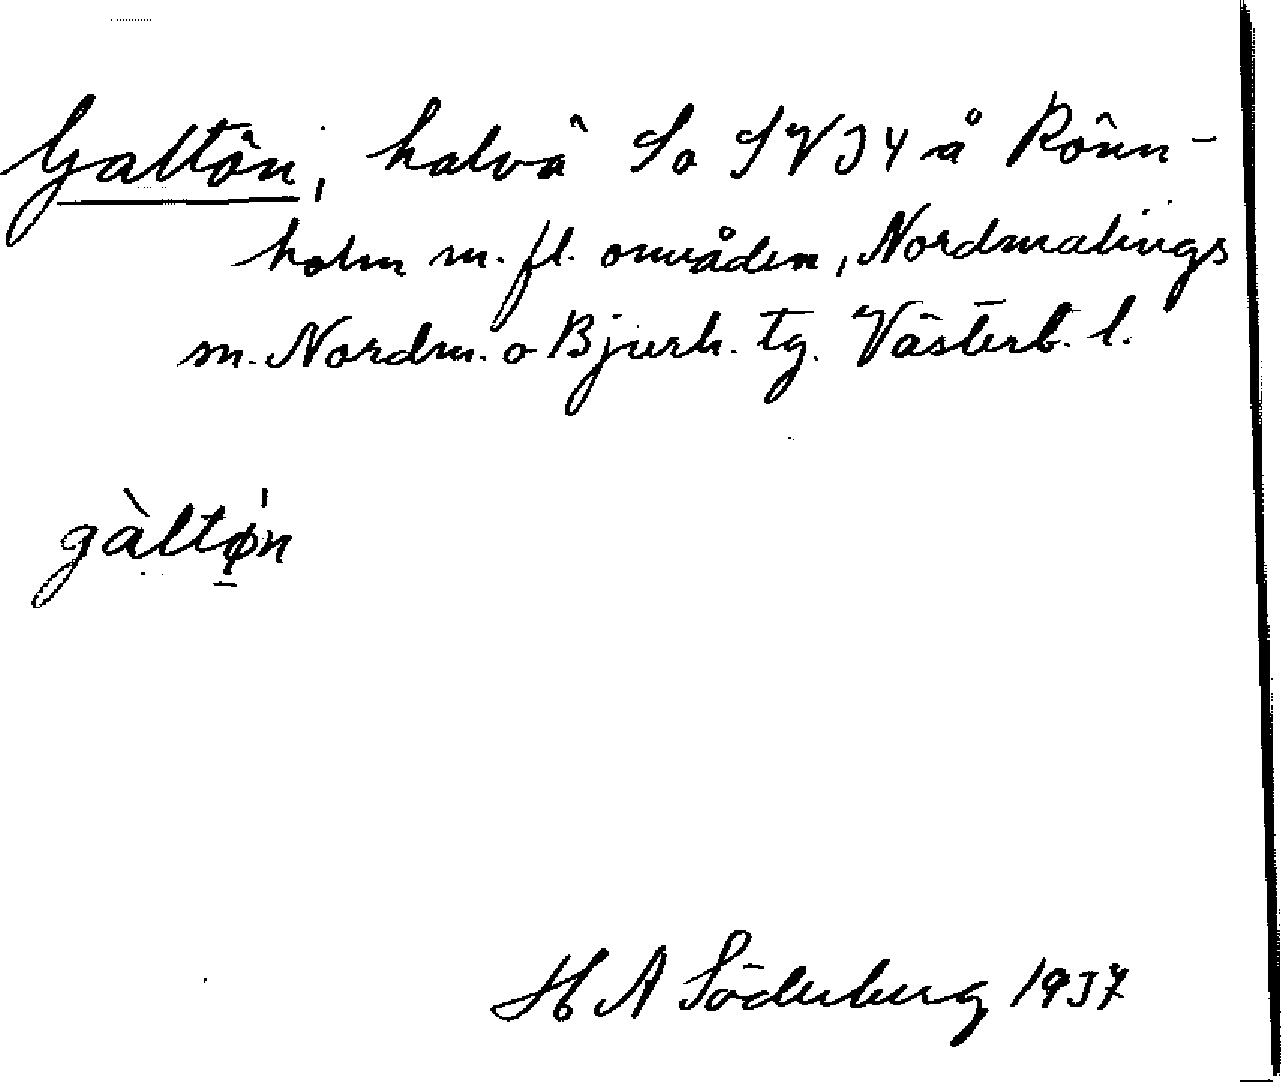 Galtön, halvö So SV34 å Rönn-
holm m. fl. områden, Nordmalings
sn. Nordm. o Bjurh. tg. Västerb. l.
gàltø̱'n
H A Söderberg 1937